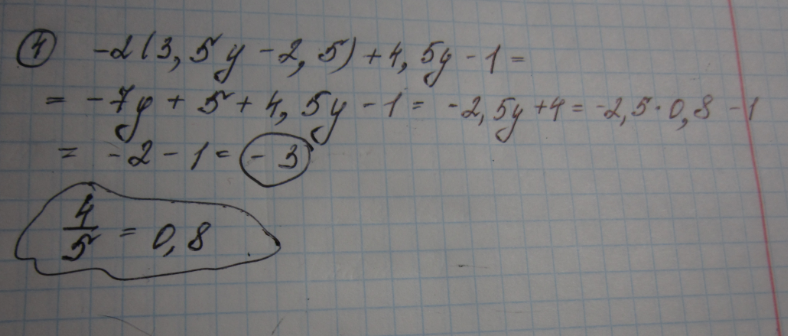 ④ -2(3,5y-2,5)+4,5y-1=
= -7y+5+4,5y-1= -2,5y+4=-2,5·0,8-1
= -2-1=-3
4/5 = 0,8